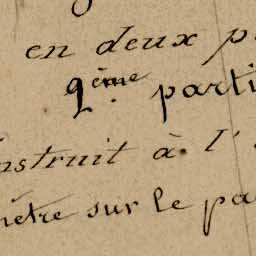 en deux p
2ème parti
nstruit à l'
mètre sur le pa